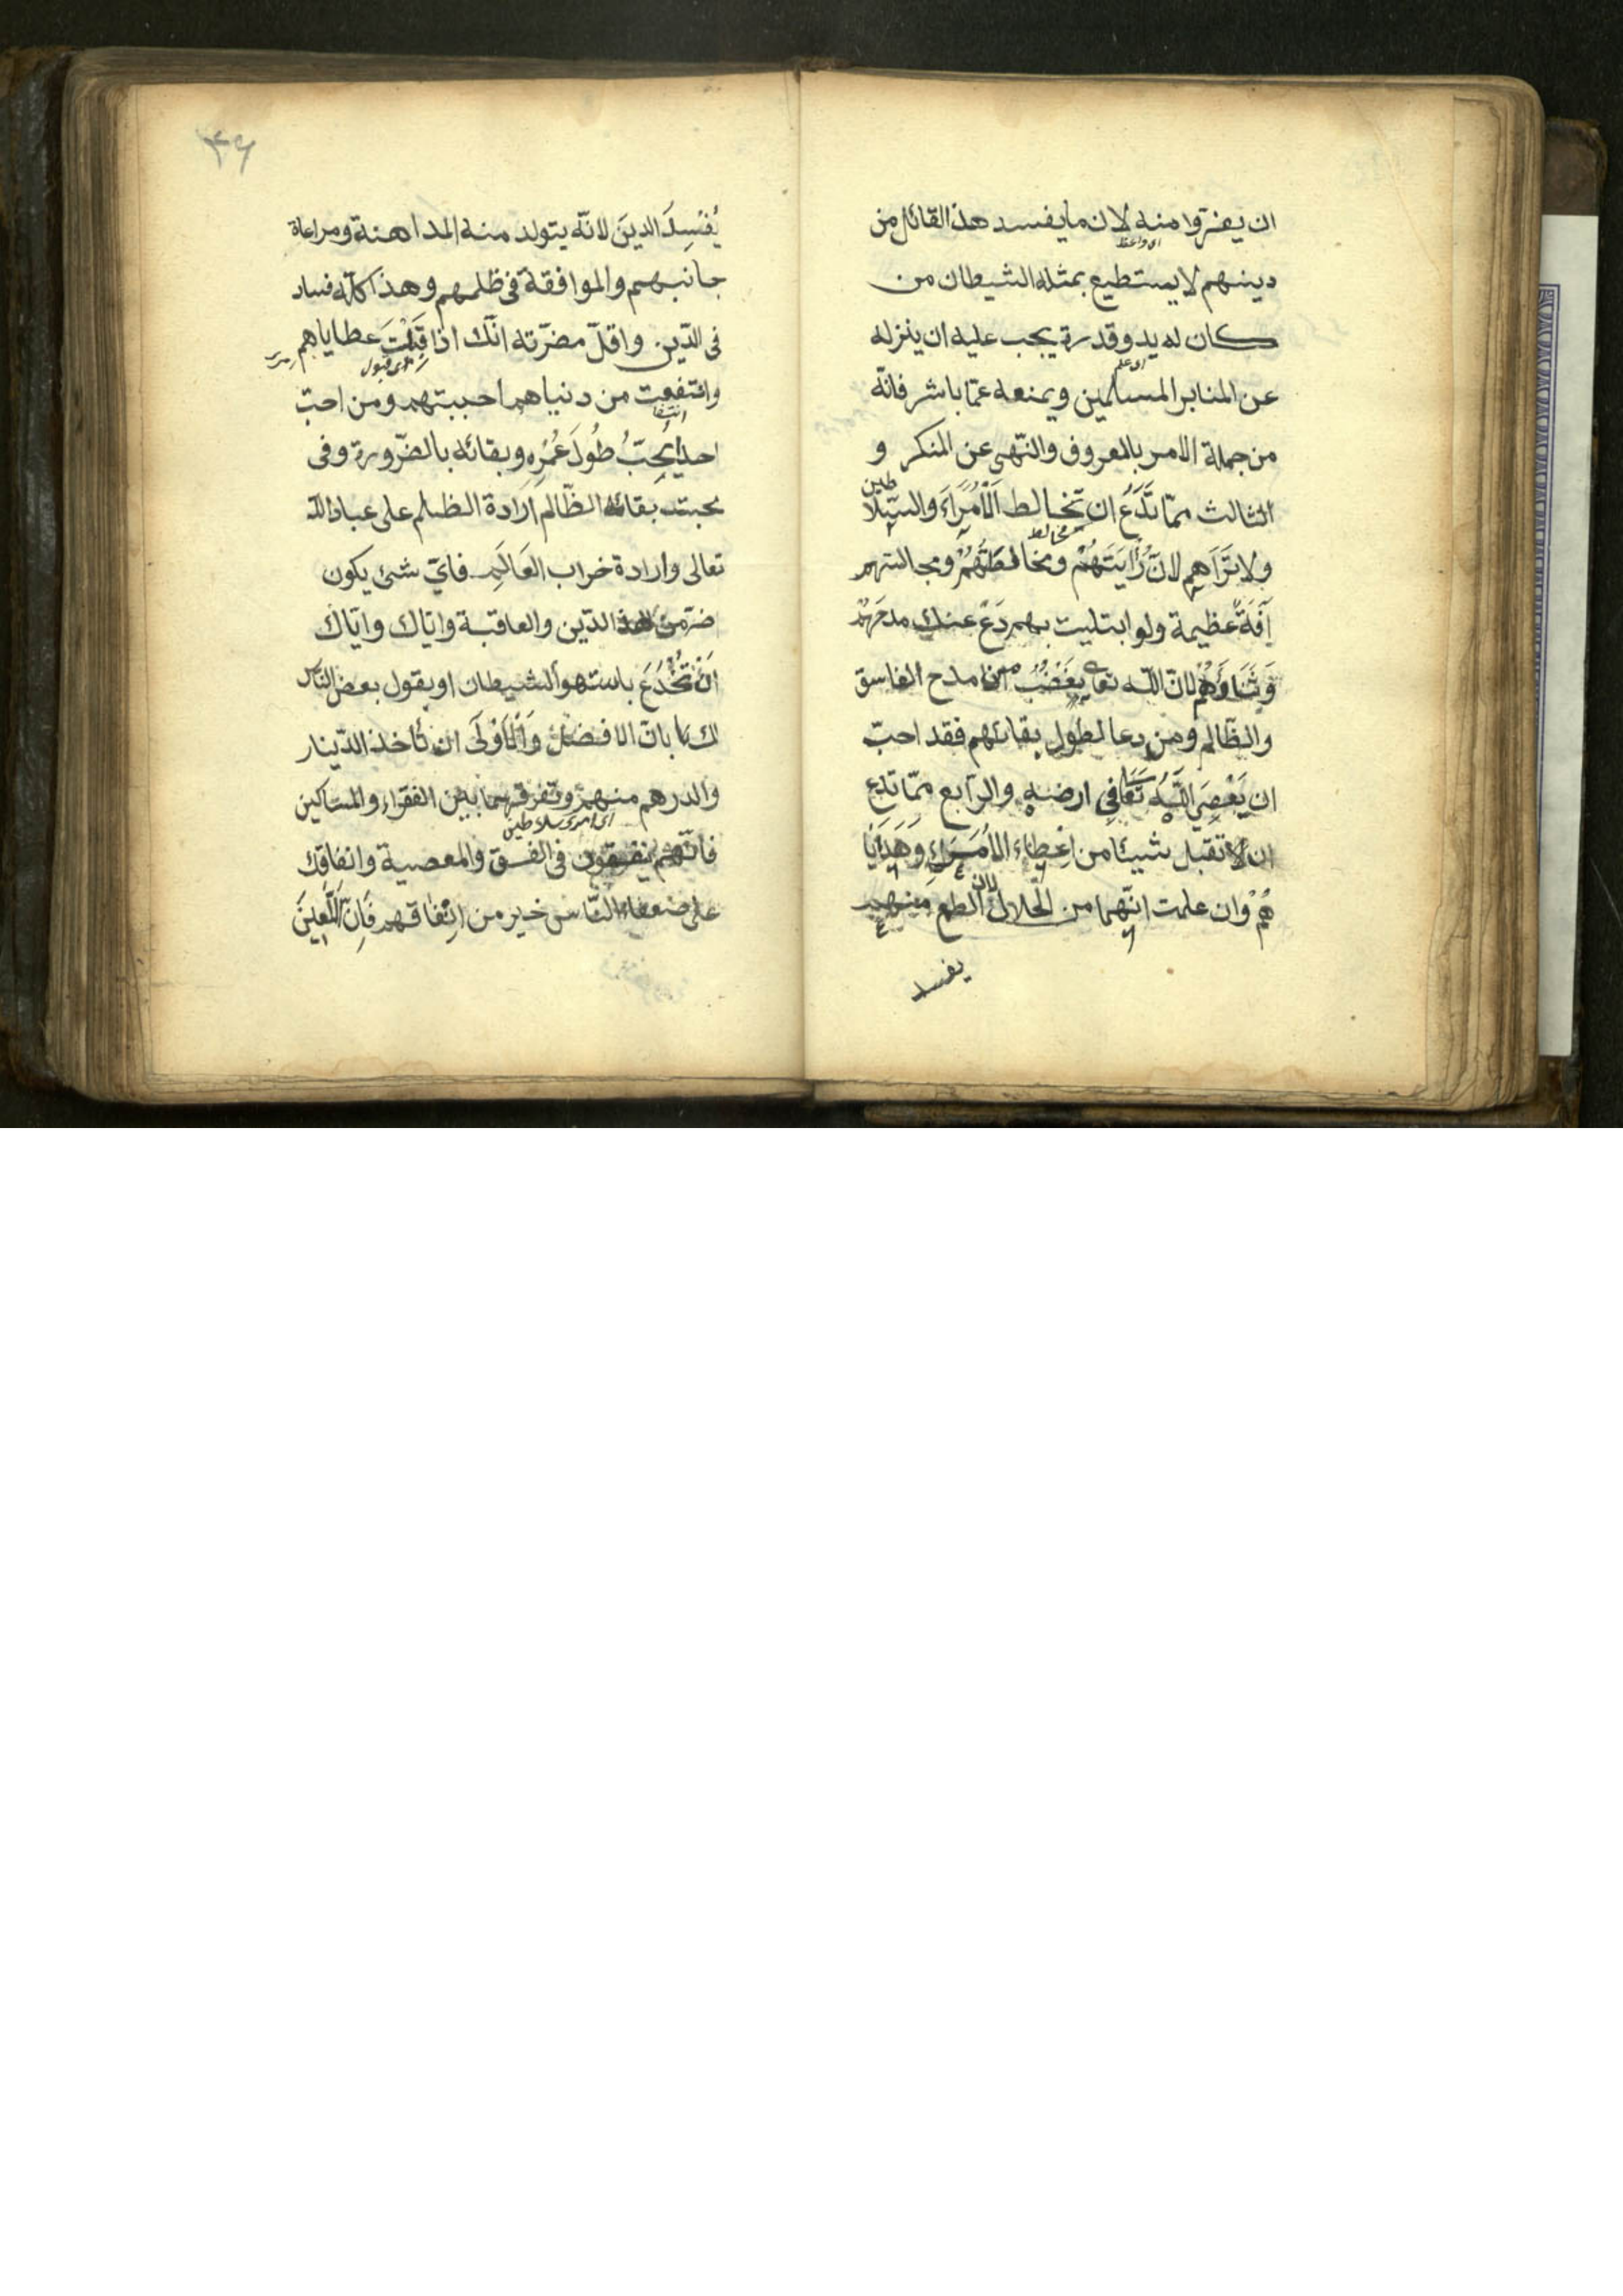 ان يفرّوا منه لان ما يفسد هذا القائل من
اى واعظ
دينهم لا يستطيع بمثله الشيطان من
كان له يد وقدرة يجب عليه ان ينزله
عن المنابر المسلمين ويمنعه عمّا باشر فانّه
من جملة الامر بالمعروف والنّهى عن المنكر و
الثالث ممّا تَدَعُ ان تخالط الْأُمَرَاءَ والسّلا
طين
ولا تَرَاهم لانّ رُايَتَهُمْ ومخالطَتُهُمْ ومجالستهم
آفَةٌ عظيمة ولو ابتليت بهم دَعْ عنك مدحَهُمْ
وَثَنَاوَهُمْ لانّ اللّه تعا يَغْضَبُ من مدح الفاسق
والظّالم ومن دعا لطول بقائهم فقد احبّ
ان يَعْصِيَ اللّهُ تَعَا فِي ارضه والرّابع ممّا تدع
ان لا تقبل شيئا من اعْطاء الاُمَرَاءِ وَهَدَايَا
هُمْ وان علمت انّهما من الحلال لان الطمع منهم
يفسد
۳۶
يُفْسِدَ الدينَ لانّه يتولد منه المداهنة ومراعاة
جانبهم والموافقة فى ظلمهم وهذا كلّه فساد
فى الدّين واقلّ مضرّته انّك اذا قَبِلْتَ عطاياهم
اى قبول
وانتفعت من دنياهم احببتهم ومن احبّ
احدا يُحِبّ طُولَ عُمُرِهِ وبقائه بالضّرورة وفى
محبته بقائه الظّالم ارادة الظلم على عباد اللّه
تعالى وارادة خراب العَالَمِ فاىّ شئ يكون
ضرّ من هذا الدّين والعاقبة وايّاك وايّاك
اَنْ تُخْدَعَ باستهوا الشيطان او يقول بعض النّاس
لك بانّ الافضل وَالْأَوْلَى ان تأخذ الدّينار
والدرهم منهم وتفرقهما بين الفقراء والمساكين
اى امرى سلاطين
فانّهم ينفقون فى الفسق والمعصية وانفاقك
على ضعفاء النّاس خير من اِنْفاقهم فَاِنّ اللَّعِينَ